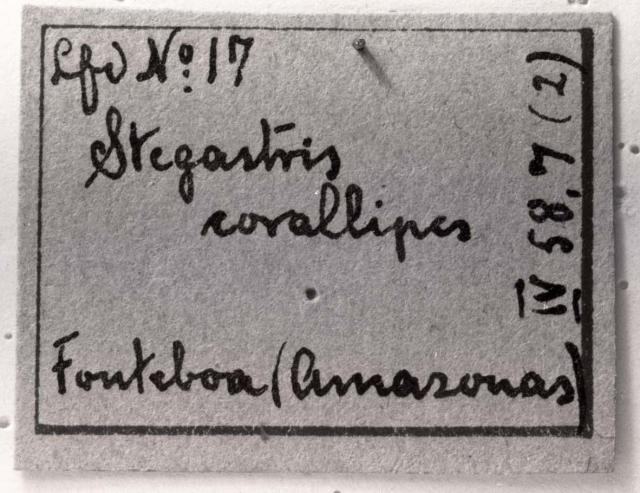 Lfd No. 17
Stegastris
corallipes
Fonteboa (Amazonas)
IV 58,7 (2)